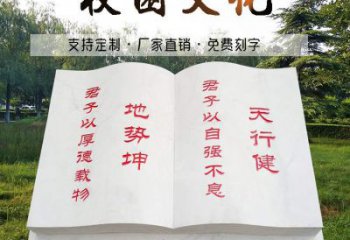 校园文化
支持定制·厂家直销·免费刻字
天行健
君子以自强不息
地势坤
君子以厚德载物